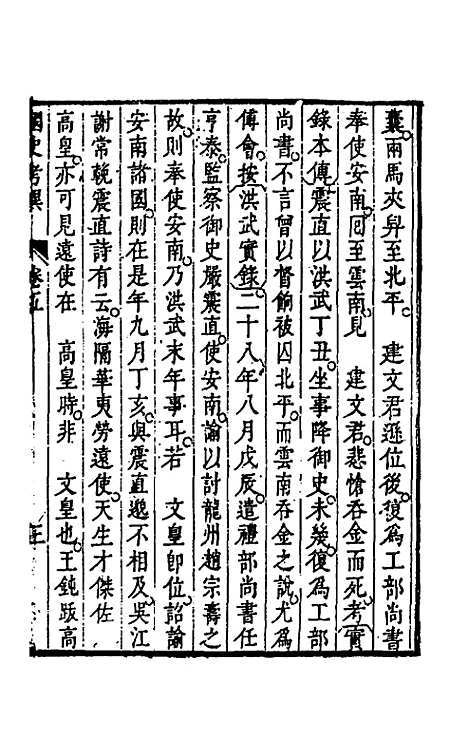 囊兩馬夾舁至北平　建文君遜位後復爲工部尚書
奉使安南囘至雲南見　建文君悲愴吞金而死考實
錄本傳震直以洪武丁丑坐事降御史未幾復爲工部
尚書不言曾以督餉被囚北平而雲南吞金之說尤爲
傅會按洪武實錄二十八年八月戊辰遣禮部尚書任
亨泰監察御史嚴震直使安南諭以討龍州趙宗壽之
故則奉使安南乃洪武末年事耳若　文皇卽位詔諭
安南諸國則在是年九月丁亥與震直邈不相及吳江
謝常輓震直詩有云海隔華夷勞遠使天生才傑佐
高皇亦可見遠使在　高皇時非　文皇也王鈍跋高
國史考異　卷五